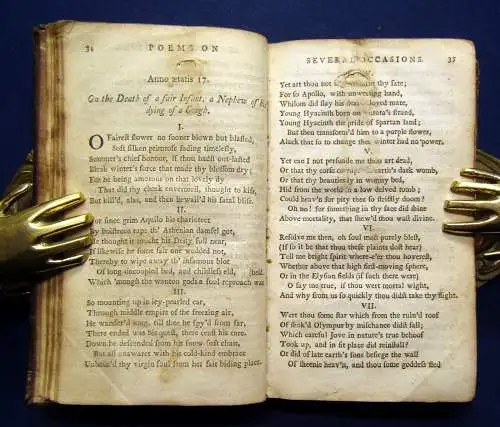 34 POEMS ON
Anno ætatis 17.
On the Death of a fair Infant, a Nephew of
dying of a Cough.
I.
O Fairest flower no sooner blown but blasted,
Soft silken primrose fading timelesly,
Summer's chief honour, if thou hadst out-lasted
Bleak winter's force that made thy blossom dry;
For he being amorous on that lovely dy
That did thy cheek envermeil, thought to kiss,
But kill'd, alas, and then bewail'd his fatal bliss.
II.
For since grim Aquilo his charioteer
By boistrous rape th' Athenian damsel got,
He thought it toucht his Deity full near,
If likewise he some fair one wedded not,
Thereby to wipe away th' infamous blot
Of long-uncoupled bed, and childless eld, [held.
Which 'mongst the wanton gods a foul reproach was
III.
So mounting up in icy-pearled car,
Through middle empire of the freezing air
He wander'd long, till thee he spy'd from far,
There ended was his quest, there ceas'd his care.
Down he descended from his snow-soft chair,
But all unawares with his cold-kind embrace
Unhous'd thy virgin soul from her fair biding place.
SEVERAL OCCASIONS. 35
IV.
Yet art thou not inglorious in thy fate;
For so Apollo, with unweeting hand,
Whilom did slay his dearly-loved mate,
Young Hyacinth born on Eurota's strand,
Young Hyacinth the pride of Spartan land;
But then transform'd him to a purple flower,
Alack that so to change thee winter had no power.
V.
Yet can I not persuade me thou art dead,
Or that thy corse corrupts in earth's dark womb,
Or that thy beauties lie in wormy bed,
Hid from the world in a low delved tomb;
Could heav'n for pity thee so strictly doom?
Oh no! for something in thy face did shine
Above mortality, that shew'd thou wast divine.
VI.
Resolve me then, oh soul most purely blest,
(If so it be that thou these plaints dost hear)
Tell me bright spirit where-e'er thou hoverest,
Whether above that high first-moving sphere,
Or in the Elysian fields (if such there were)
O say me true, if thou wert mortal wight,
And why from us so quickly thou didst take thy flight.
VII.
Wert thou some star which from the ruin'd roof
Of shak'd Olympus by mischance didst fall;
Which careful Jove in nature's true behoof
Took up, and in fit place did reinstall?
Or did of late earth's sons besiege the wall
Of sheenie heav'n, and thou some goddess fled